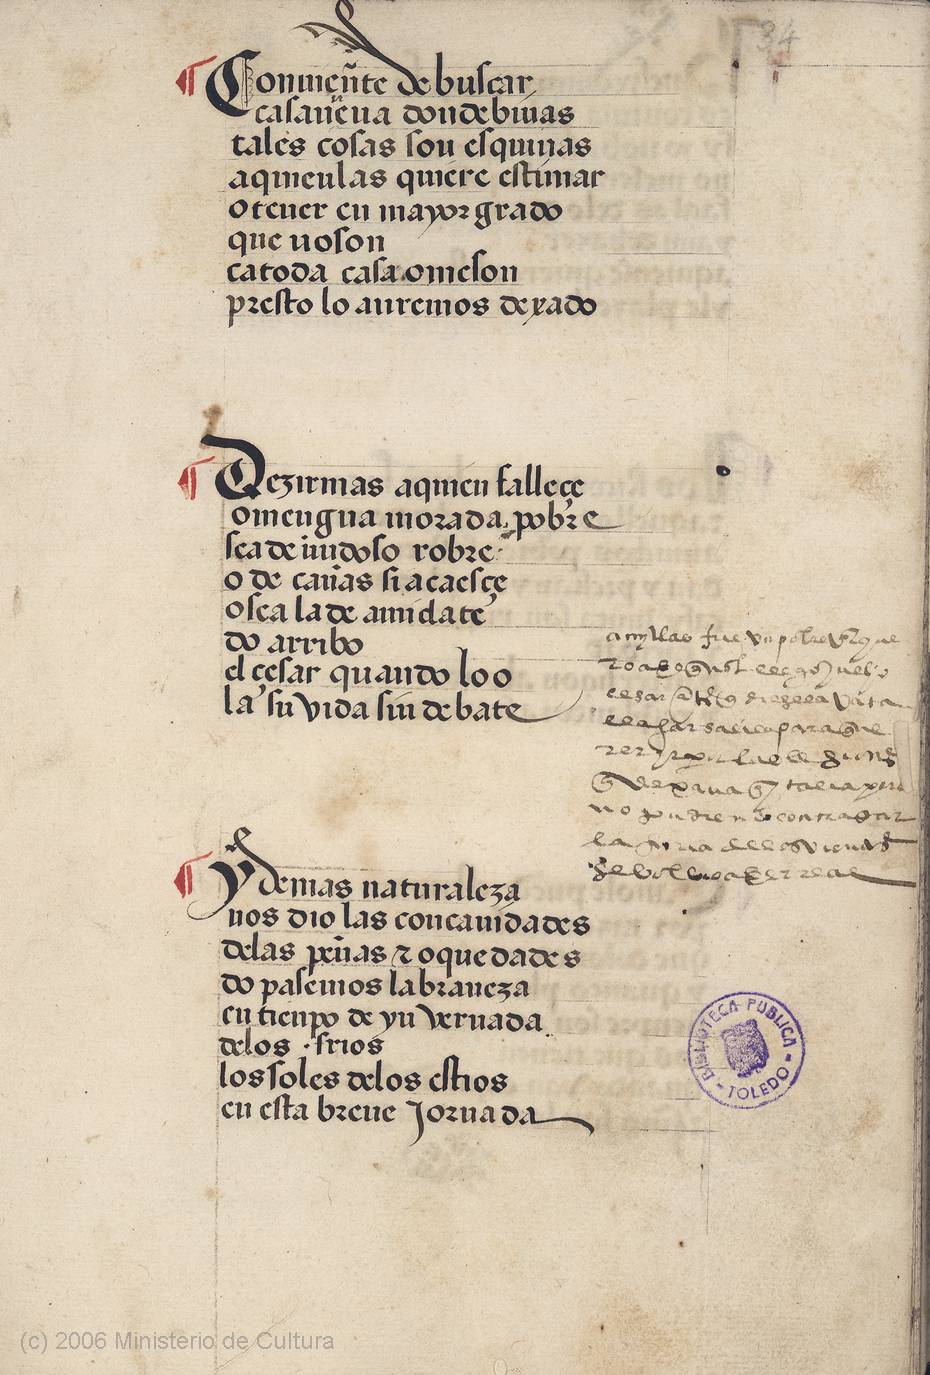 34
Convieñte de buscar
casa nueua donde biuas
tales cosas son esquiuas
aquien las quiere estimar
o tener en mayor grado
que no son
ca toda casa o meson
presto lo auremos dexado
Dezirmas aquien fallece
o mengua morada pobre
sea de ñudoso robre
o de cañas si acaesçe
o sea la de amiclate
do arribo
el cesar quando loo
la su vida sin debate
amyllao fue vn pobre
cesar
no contrastar
la furia de los vientos
y de mas naturaleza
nos dio las concauidades
delas peñas τ oquedades
do pasemos la braueza
en tienpo de ynvernada
delos frios
los soles delos estios
en esta breue Jornada
BIBLIOTECA PUBLICA
- TOLEDO -
(c) 2006 Ministerio de Cultura